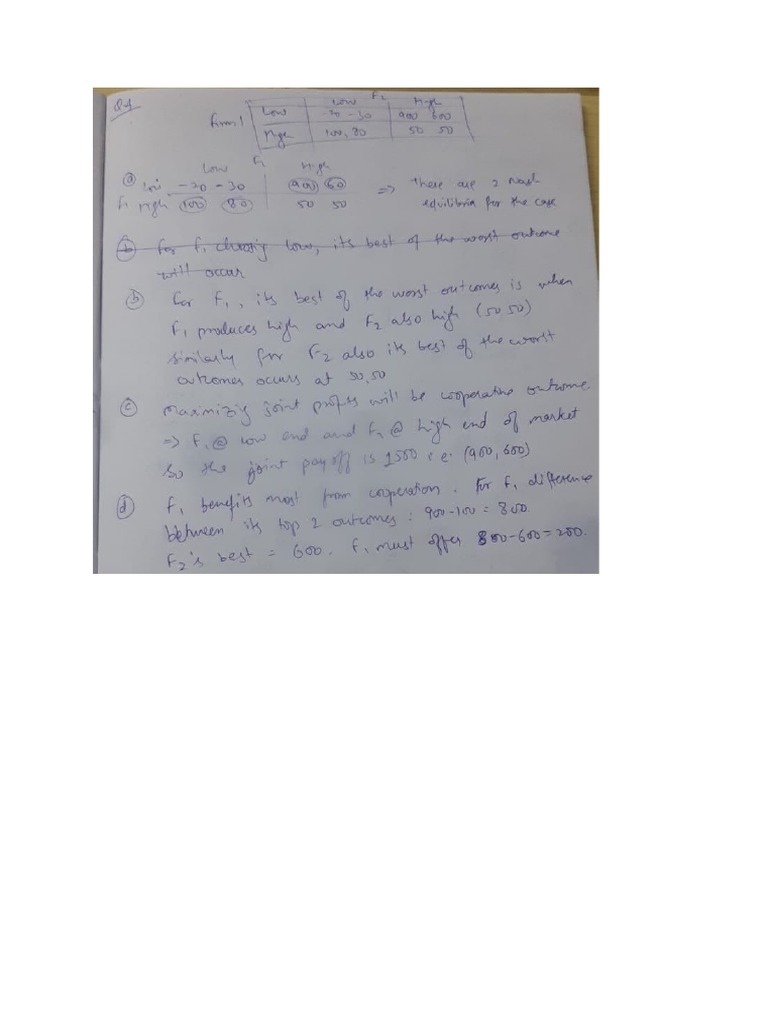 Q4
F2
Low High
Firm 1 Low -20 -30 900 600
High 100, 80 50 50
Low F2 High
(a) Low -20 -30 (900) (60) => There are 2 Nash
F1 High (100) (80) 50 50 equilibria for the case
(b) For F1 choosing low, its best of the worst outcome
will occur
(b) For F1, its best of the worst outcomes is when
F1 produces high and F2 also high (50 50)
similarly for F2 also its best of the worst
outcomes occurs at 50,50
(c) Maximizing joint profits will be cooperative outcome
=> F1 @ low end and F2 @ high end of market
So the joint payoff is 1500 i.e. (900, 600)
(d) F1 benefits most from cooperation. For F1 difference
between its top 2 outcomes : 900-100 = 800.
F2's best = 600. F1 must offer 800-600=200.